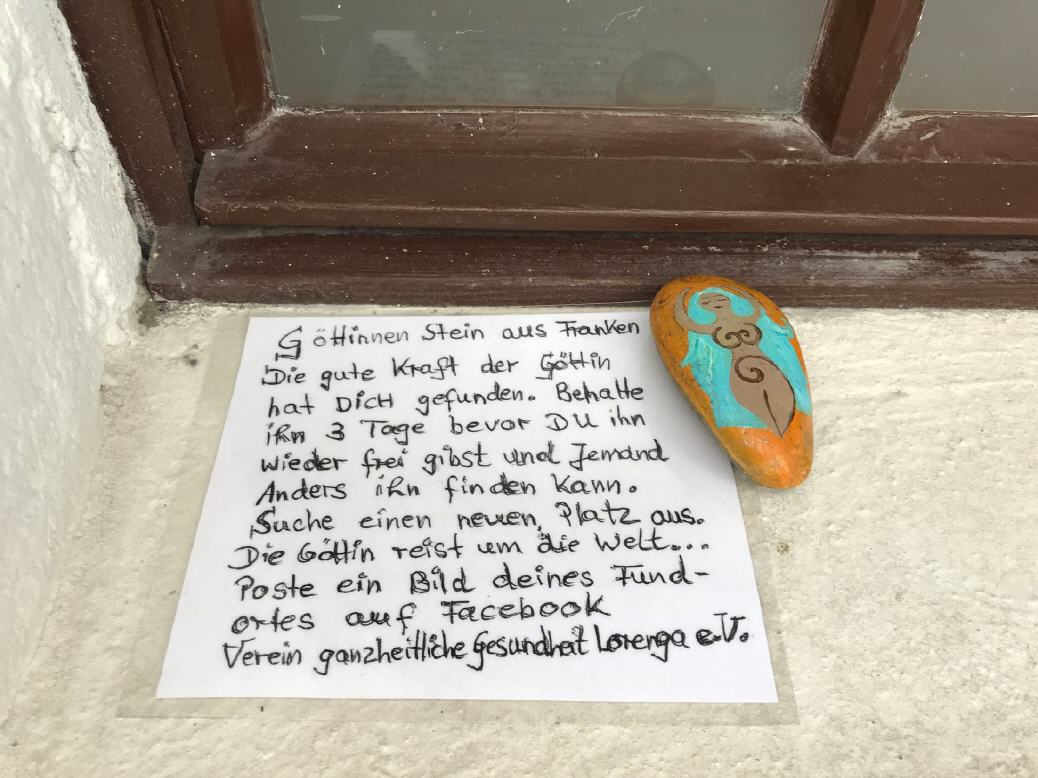 Göttinnen Stein aus Franken
Die gute Kraft der Göttin
hat DICH gefunden. Behalte
ihn 3 Tage bevor DU ihn
wieder frei gibst und Jemand
Anders ihn finden kann.
Suche einen neuen Platz aus.
Die Göttin reist um die Welt...
Poste ein Bild deines Fund-
ortes auf Facebook
Verein ganzheitliche Gesundheit Lorenga e.V.